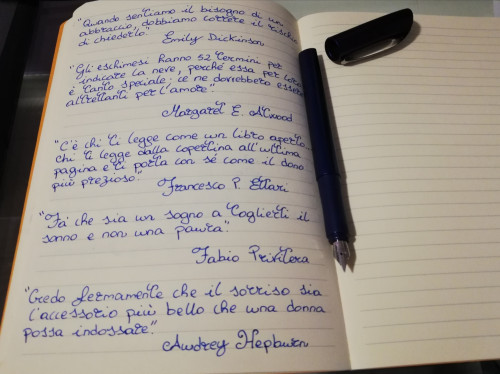 "Quando sentiamo il bisogno di un
abbraccio, dobbiamo correre il rischio
di chiederlo."
Emily Dickinson
"Gli eschimesi hanno 52 termini per
indicare la neve, perché essa per loro
è tanto speciale: ce ne dovrebbero essere
altrettanti per l'amore"
Margaret E. Atwood
"C'è chi ti legge come un libro aperto,
chi ti legge dalla copertina all'ultima
pagina e ti porta con sé come il dono
più prezioso"
Francesco P. Ettari
"Fa' che sia un sogno a toglierti il
sonno e non una paura"
Fabio Privitera
"Credo fermamente che il sorriso sia
l'accessorio più bello che una donna
possa indossare"
Audrey Hepburn